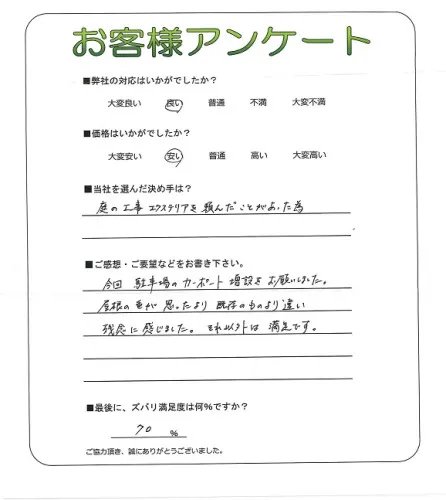 お客様アンケート
■弊社の対応はいかがでしたか?
大変良い 良い 普通 不満 大変不満
■価格はいかがでしたか?
大変安い 安い 普通 高い 大変高い
■当社を選んだ決め手は?
庭の工事 エクステリアを頼んだことがあった為
■ご感想・ご要望などをお書き下さい。
今回 駐車場のカーポート増設をお願いしました。
屋根の色が思ったより既存のものより違い
残念に感じました。それ以外は満足です。
■最後に、ズバリ満足度は何%ですか?
70 %
ご協力頂き、誠にありがとうございました。